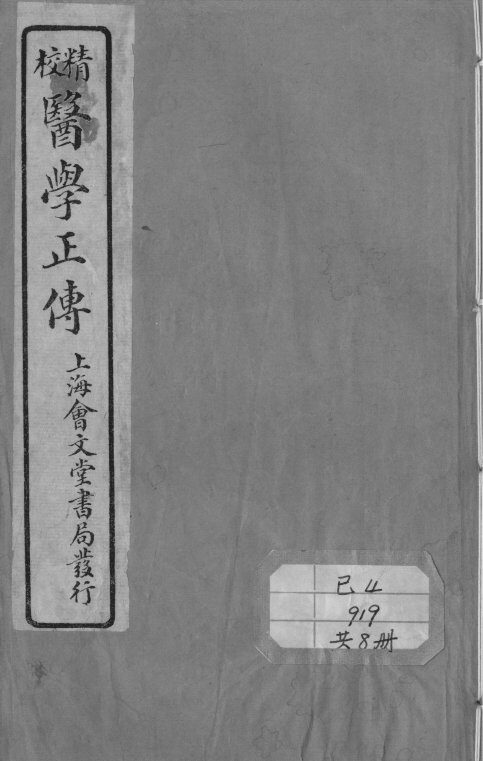 精校
醫學正傳
上海會文堂書局發行
已4
919
共8册